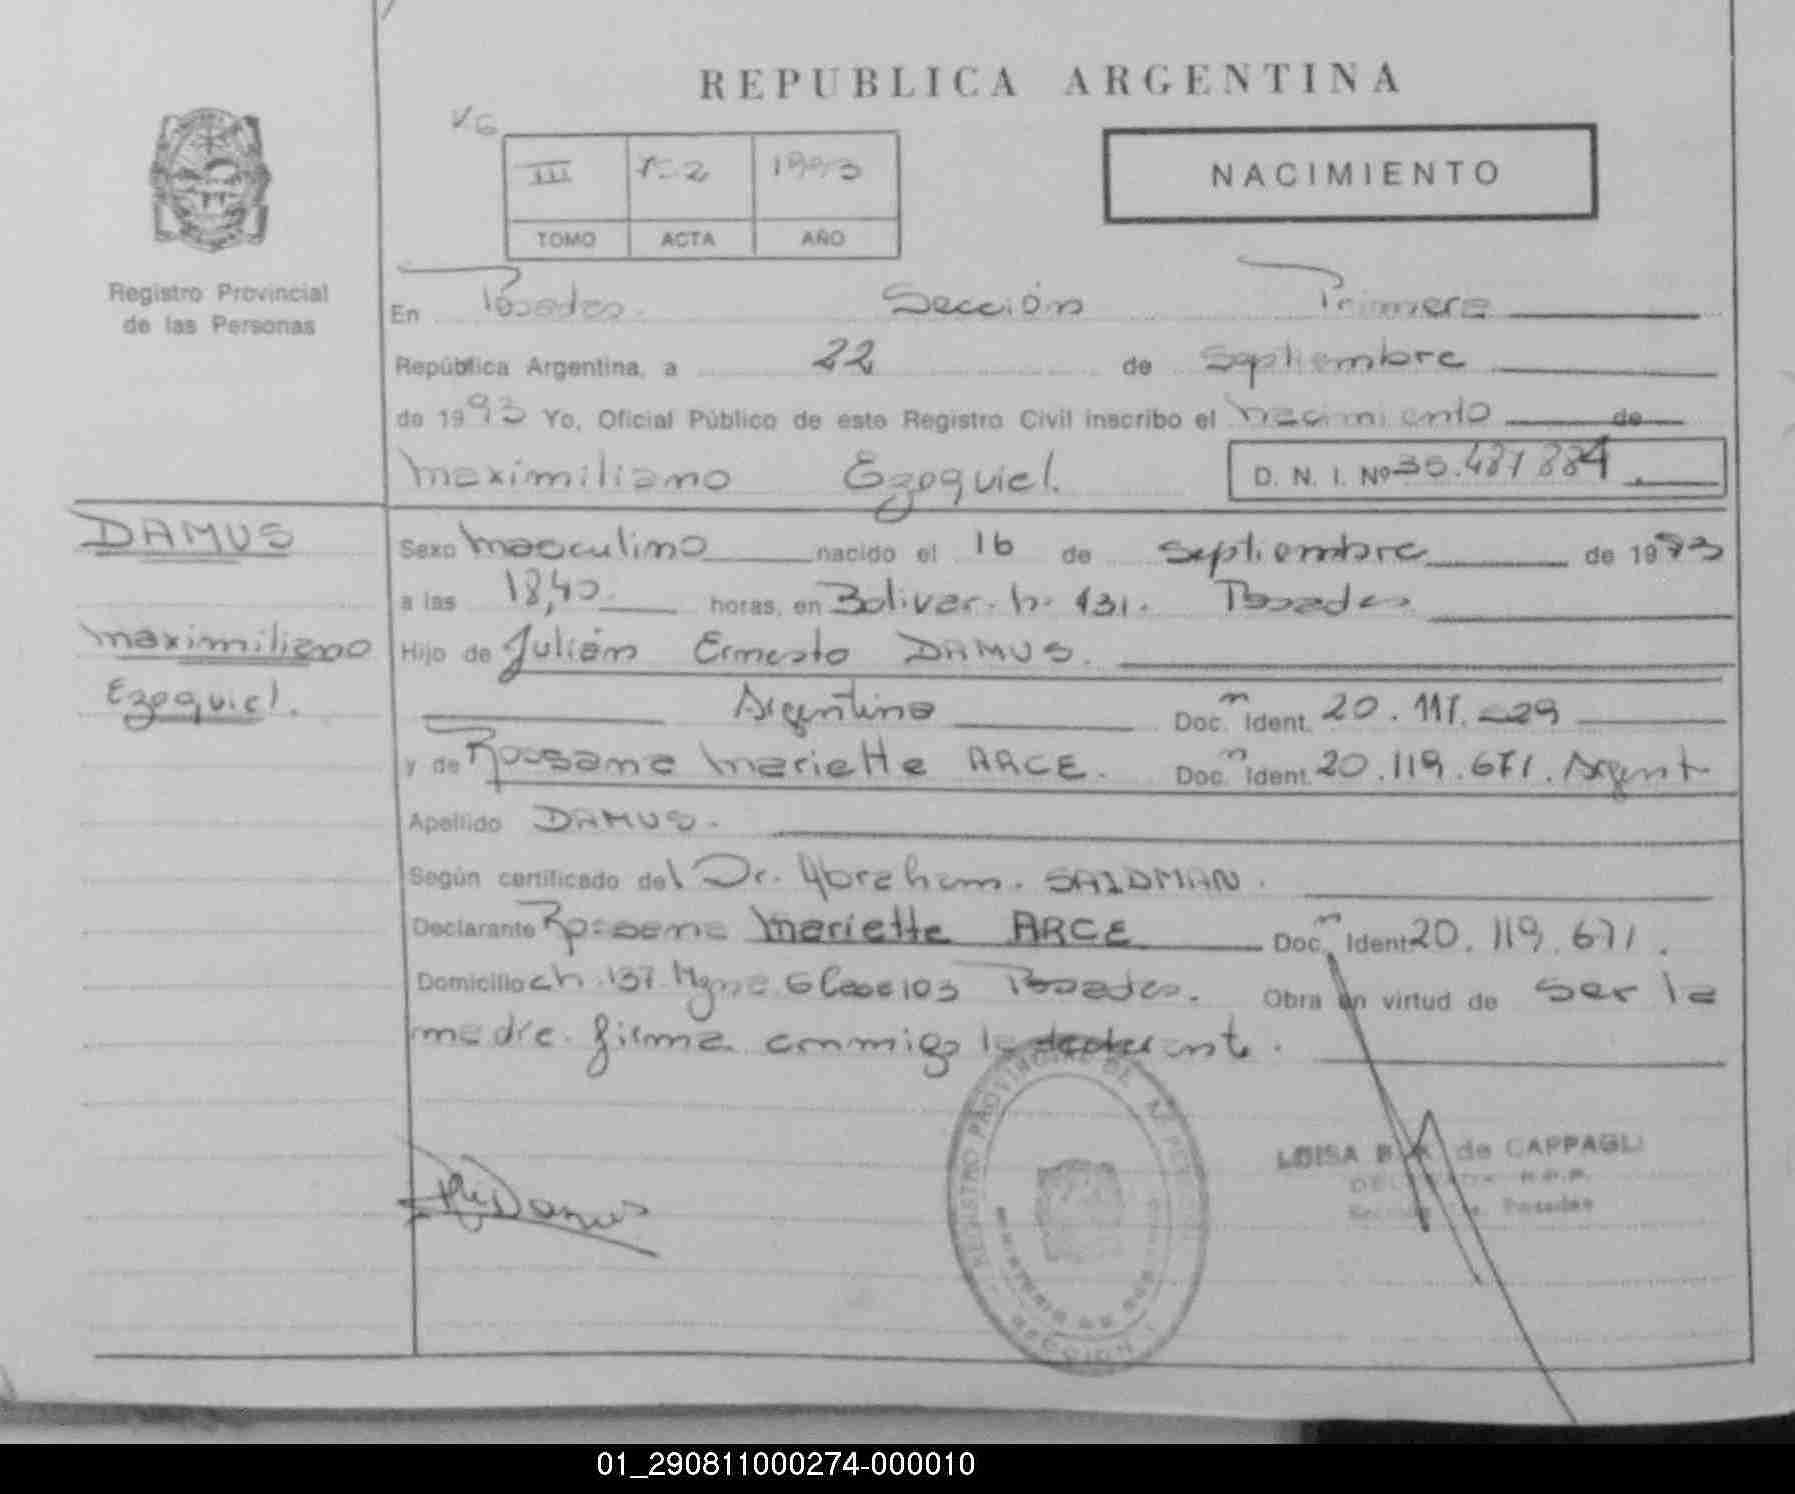 REPUBLICA ARGENTINA
NACIMIENTO
III 1993
TOMO ACTA AÑO
Registro Provincial
de las Personas
En Posadas. Sección Primera
República Argentina, a 22 de Septiembre
de 1993 Yo, Oficial Público de este Registro Civil inscribo el nacimiento de
Maximiliano Ezequiel. D. N. I. Nº
DAMUS
Maximiliano
Ezequiel.
Sexo Masculino nacido el 16 de Septiembre de 1993
a las 18,40. horas, en Bolivar. Posadas
Hijo de Julián Ernesto DAMUS.
Argentino Doc. Ident. 20.
y de Rossana Mariette ARCE. Doc. Ident. 20.119.671. Argent
Apellido DAMUS.
Según certificado del Dr. Abraham. SAIDMAN.
Declarante Rossana Mariette ARCE Doc. Ident 20.119.671.
Domicilio ch. 137 Posadas. Obra en virtud de ser la
madre. firma conmigo la declarante.
Damus
REGISTRO PROVINCIAL DE
LUISA de CAPPAGLI
Posadas
01_290811000274-000010